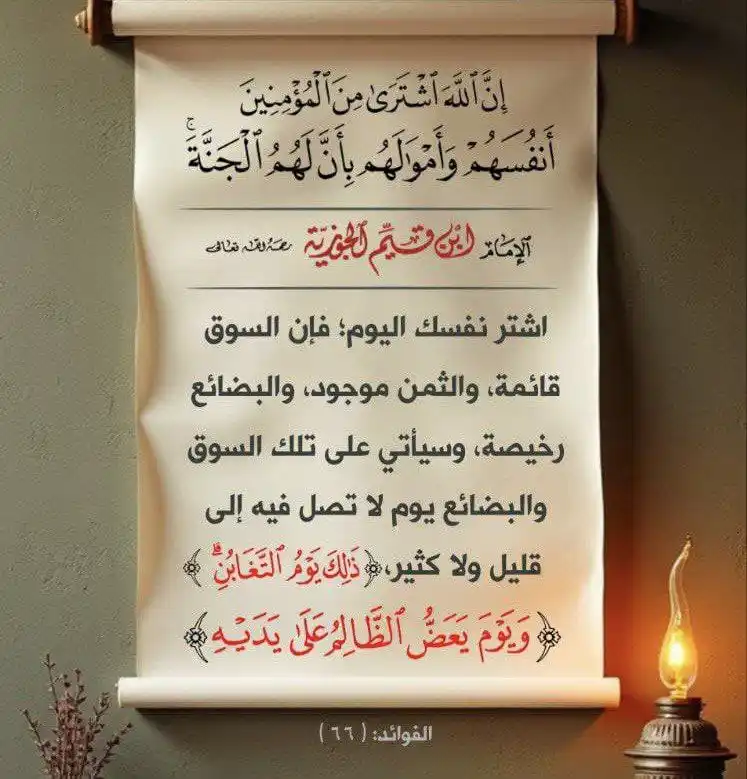 إِنَّ ٱللَّهَ ٱشْتَرَىٰ مِنَ ٱلْمُؤْمِنِينَ
أَنفُسَهُمْ وَأَمْوَٰلَهُم بِأَنَّ لَهُمُ ٱلْجَنَّةَ ۚ
الإمام ابن قيم الجوزية رحمه الله تعالى
اشتر نفسك اليوم؛ فإن السوق
قائمة، والثمن موجود، والبضائع
رخيصة، وسيأتي على تلك السوق
والبضائع يوم لا تصل فيه إلى
قليل ولا كثير، ﴿ذَٰلِكَ يَوْمُ ٱلتَّغَابُنِ ۗ﴾
﴿وَيَوْمَ يَعَضُّ ٱلظَّالِمُ عَلَىٰ يَدَيْهِ﴾
الفوائد: (٦٦)